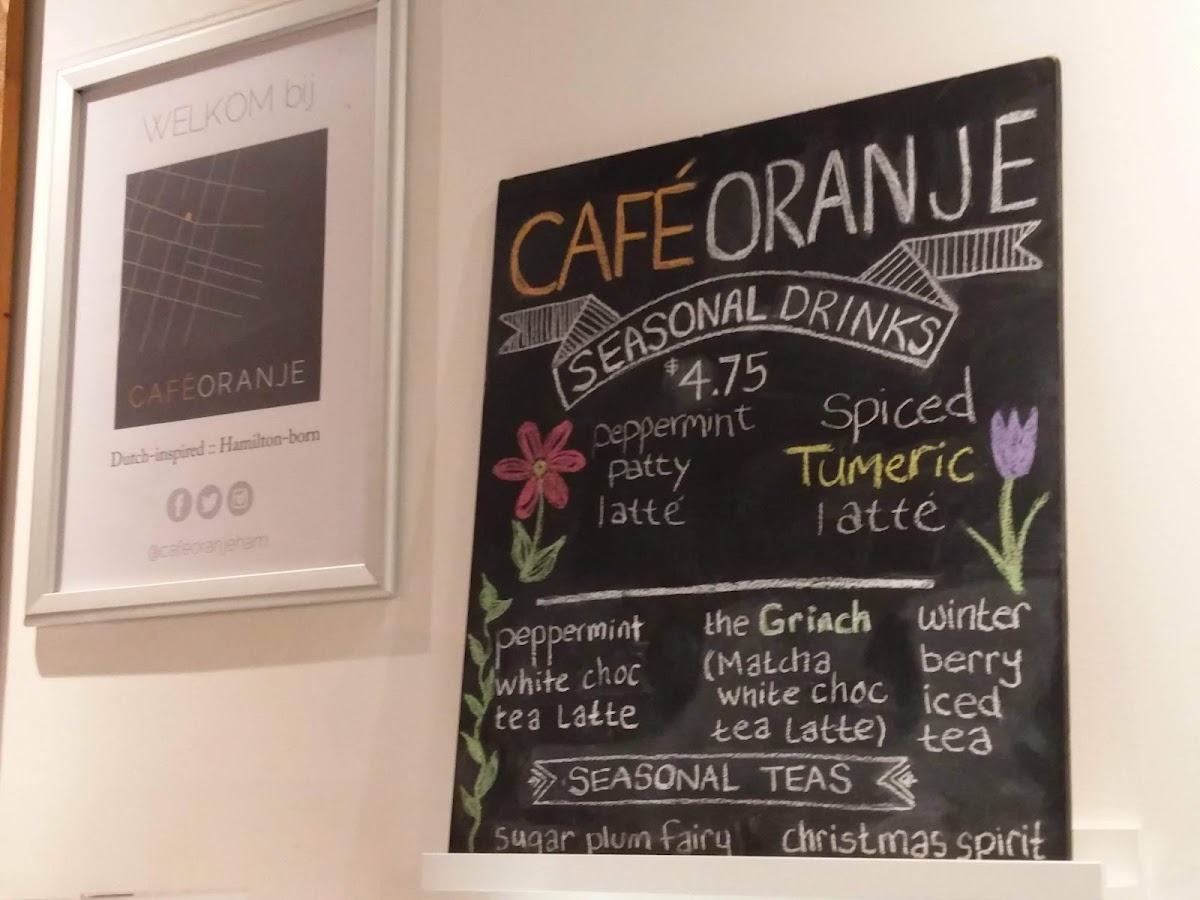 WELKOM bij
CAFÉORANJE
Dutch-inspired :: Hamilton-born
@cafeoranjeham
CAFÉ ORANJE
SEASONAL DRINKS
$4.75
peppermint
patty
latté
Spiced
Tumeric
latté
peppermint
white choc
tea Latte
the Grinch
(Matcha
white choc
tea Latte)
winter
berry
iced
tea
SEASONAL TEAS
sugar plum fairy
christmas spirit